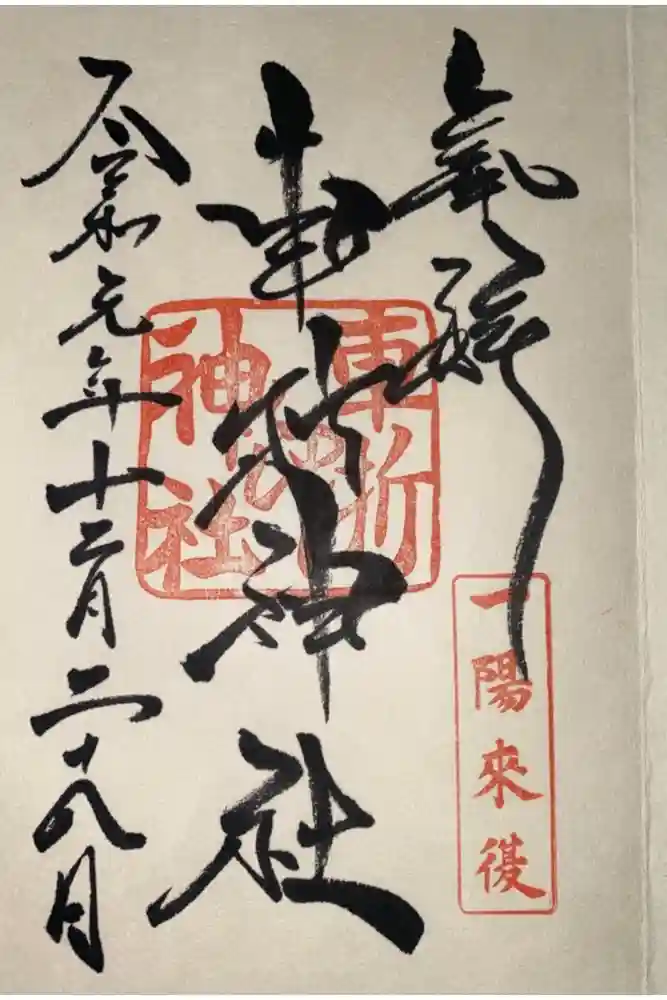 奉拝
一陽來復
車折神社
車折
神社
令和元年十二月二十八日